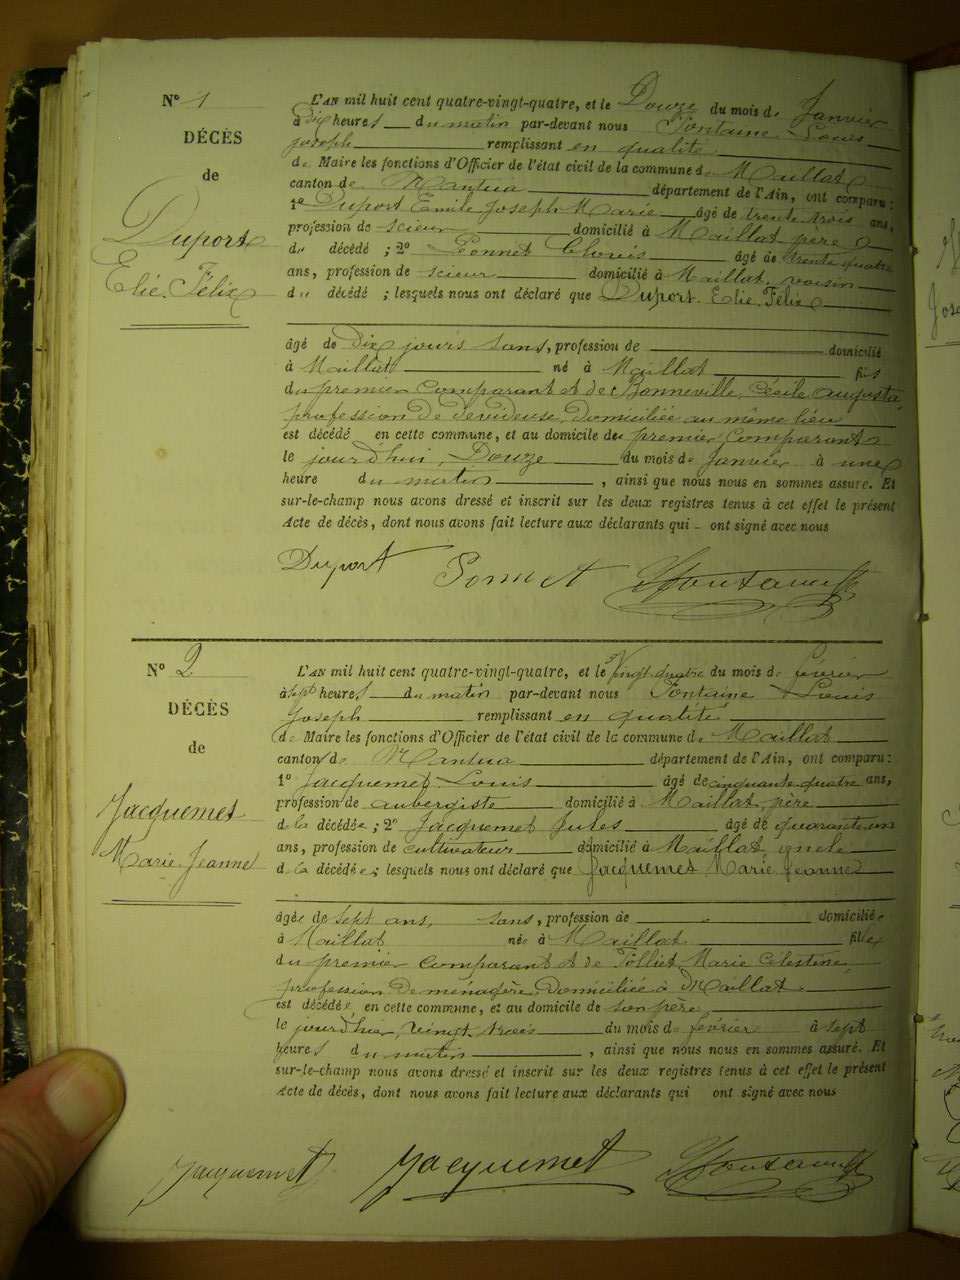 N° 1
DÉCÈS
de
Duport
Elie Félix
L'AN mil huit cent quatre-vingt-quatre, et le Douze du mois de Janvier
à Dix heures du matin par-devant nous Fontaine Louis
Joseph remplissant en qualité
de Maire les fonctions d'Officier de l'état civil de la commune de Maillat
canton de Nantua département de l'Ain, ont comparu :
1° Duport Emile Joseph Marie âgé de trente trois ans,
profession de scieur domicilié à Maillat, père
du décédé ; 2° Ponnet Clovis âgé de trente quatre
ans, profession de scieur domicilié à Maillat, voisin
du décédé ; lesquels nous ont déclaré que Duport Elie Félix
âgé de Dix jours sans, profession de domicilié
à Maillat né à Maillat fils
du premier comparant et de Bonneville, Cécile augusta,
profession de Dévideuse, domiciliée au même lieu
est décédé en cette commune, et au domicile du premier Comparant
le jourd'hui, Douze du mois de Janvier à une
heure du matin, ainsi que nous nous en sommes assuré. Et
sur-le-champ nous avons dressé et inscrit sur les deux registres tenus à cet effet le présent
Acte de décès, dont nous avons fait lecture aux déclarants qui ont signé avec nous
Duport Ponnet Fontaine
N° 2
DÉCÈS
de
Jacquemet
Marie Jeanne
L'AN mil huit cent quatre-vingt-quatre, et le Vingt quatre du mois de février
à sept heures du matin par-devant nous Fontaine Louis
Joseph remplissant en qualité
de Maire les fonctions d'Officier de l'état civil de la commune de Maillat
canton de Nantua département de l'Ain, ont comparu :
1° Jacquemet Louis âgé de cinquante quatre ans,
profession de aubergiste domicilié à Maillat, père
de la décédée ; 2° Jacquemet Jules âgé de quarante un
ans, profession de cultivateur domicilié à Maillat, oncle
de la décédée ; lesquels nous ont déclaré que Jacquemet Marie Jeanne
âgée de sept ans, sans, profession de domiciliée
à Maillat née à Maillat fille
du premier comparant et de Tolliet Marie Célestine,
profession de ménagère, domiciliée à Maillat
est décédée en cette commune, et au domicile de son père
le jourd'hier, vingt trois du mois de février à sept
heures du matin, ainsi que nous nous en sommes assuré. Et
sur-le-champ nous avons dressé et inscrit sur les deux registres tenus à cet effet le présent
Acte de décès, dont nous avons fait lecture aux déclarants qui ont signé avec nous
Jacquemet Jacquemet Fontaine